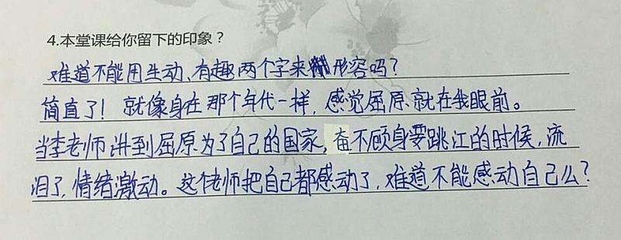 4.本堂课给你留下的印象？
难道不能用生动、有趣两个字来形容吗？
简直了！就像身在那个年代一样，感觉屈原就在我眼前。
当李老师讲到屈原为了自己的国家，奋不顾身要跳江的时候，流
泪了，情绪激动。这个老师把自己都感动了，难道不能感动自己么？